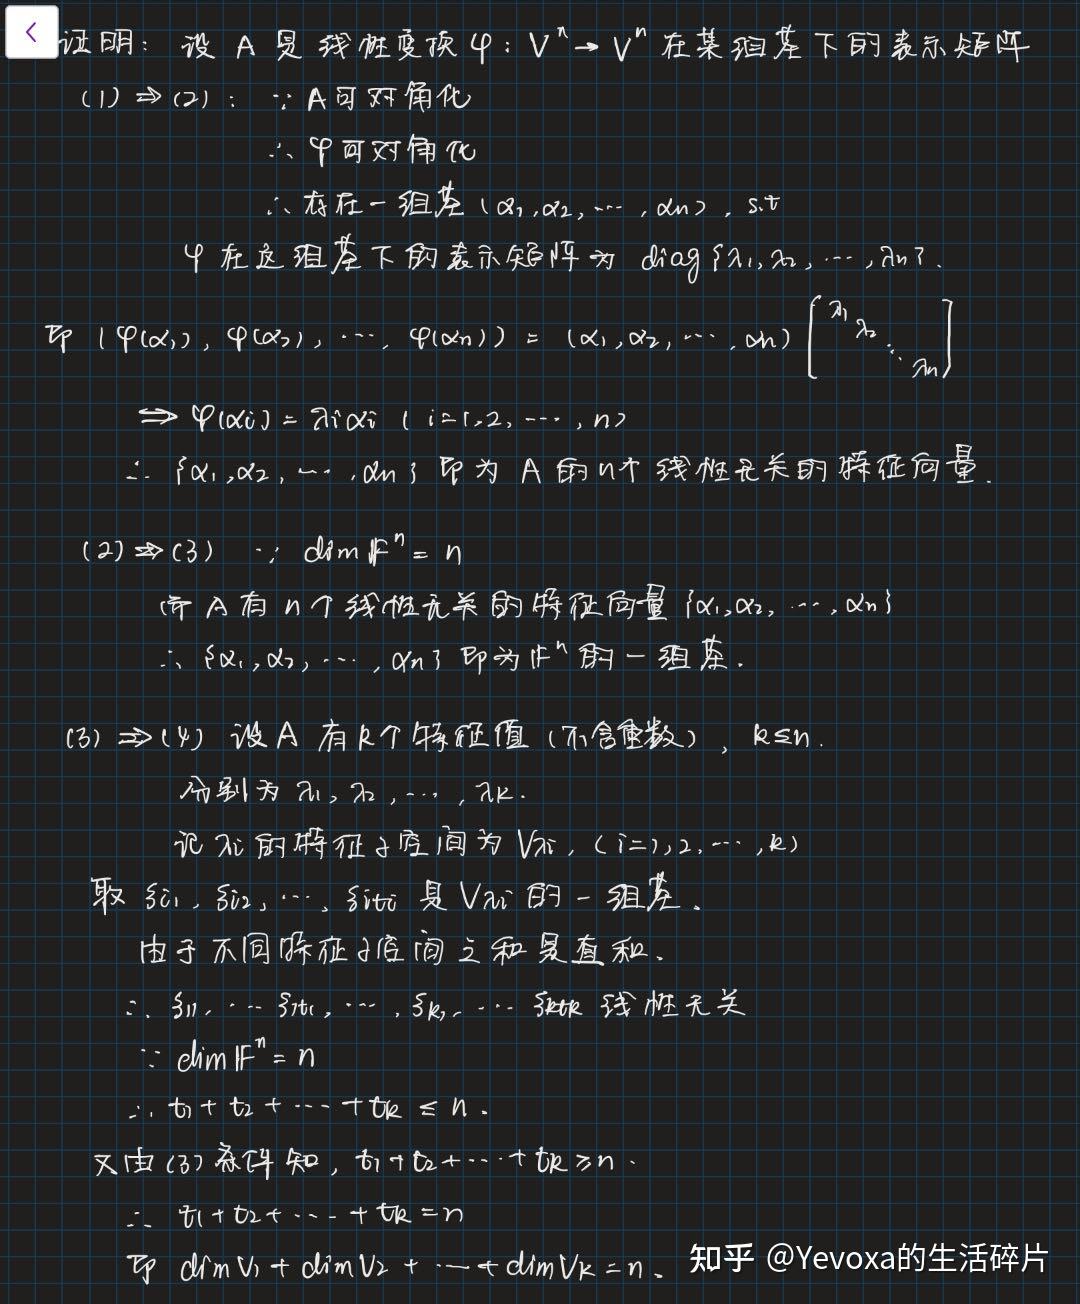 证明: 设 A 是线性变换 φ: Vⁿ→Vⁿ 在某组基下的表示矩阵
(1)⇒(2): ∵ A可对角化
∴ φ可对角化
∴ 存在一组基 (α₁,α₂,…,αn), s.t
φ在这组基下的表示矩阵为 diag{λ₁,λ₂,…,λn}.
即 (φ(α₁), φ(α₂), …, φ(αn)) = (α₁,α₂,…,αn) [λ₁ λ₂ ⋱ λn]
⇒ φ(αi) = λiαi (i=1,2,…,n)
∴ {α₁,α₂,…,αn} 即为 A 的n个线性无关的特征向量.
(2)⇒(3) ∵ dim𝔽ⁿ = n
而 A 有 n 个线性无关的特征向量 {α₁,α₂,…,αn}
∴ {α₁,α₂,…,αn} 即为 𝔽ⁿ 的一组基.
(3)⇒(4) 设 A 有 k个特征值 (不含重数), k≤n.
分别为 λ₁, λ₂,…, λk.
记 λi 的特征子空间为 Vλi, (i=1,2,…,k)
取 ξi₁, ξi₂, …, ξiti 是 Vλi 的一组基.
由于不同特征子空间之和是直和.
∴ ξ₁₁, … ξ₁t₁, …, ξk₁, … ξktk 线性无关
∵ dim𝔽ⁿ = n
∴ t₁+t₂+…+tk ≤ n.
又由(3)条件知, t₁+t₂+…+tk ≥ n.
∴ t₁+t₂+…+tk = n
即 dimV₁+dimV₂+…+dimVk = n.
知乎 @Yevoxa的生活碎片